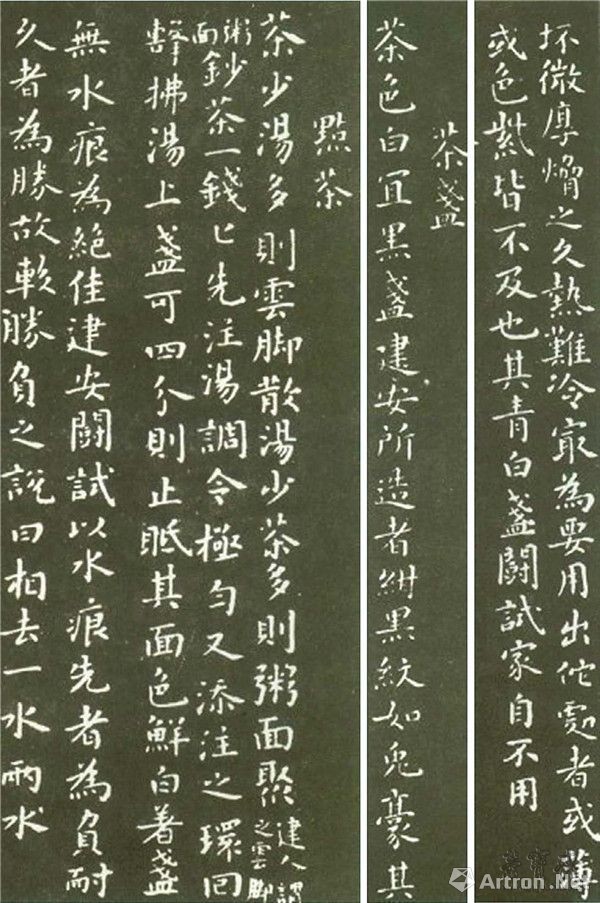 坯微厚熁之久熱難冷冣為要用出佗處者或薄
或色紫皆不及也其青白盞鬭試家自不用
茶盞
茶色白宜黑盞建安所造者紺黑紋如兔豪其
點茶
茶少湯多則雲脚散湯少茶多則粥面聚建人謂之雲脚
粥面鈔茶一錢匕先注湯調令極勻又添注之環回
擊拂湯上盞可四分則止眡其面色鮮白著盞
無水痕為絕佳建安鬭試以水痕先者為負耐
久者為勝故較勝負之說曰相去一水兩水
Artron.Net